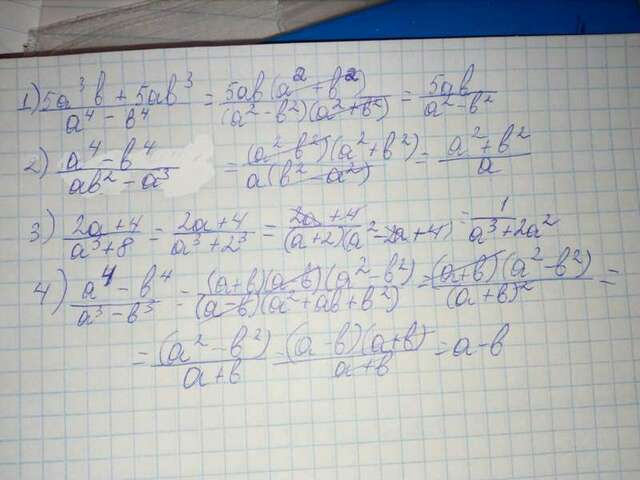 1) (5a³b + 5ab³)/(a⁴ - b⁴) = (5ab(a² + b²))/((a² - b²)(a² + b²)) = 5ab/(a² - b²)
2) (a⁴ - b⁴)/(ab² - a³) = ((a² - b²)(a² + b²))/(a(b² - a²)) = (a² + b²)/a
3) (2a + 4)/(a³ + 8) = (2a + 4)/(a³ + 2³) = (2a + 4)/((a + 2)(a² - 2a + 4)) = 1/(a³ + 2a²)
4) (a⁴ - b⁴)/(a³ - b³) = ((a + b)(a - b)(a² - b²))/((a - b)(a² + ab + b²)) = ((a + b)(a² - b²))/(a + b)² =
= (a² - b²)/(a + b) = ((a - b)(a + b))/(a + b) = a - b